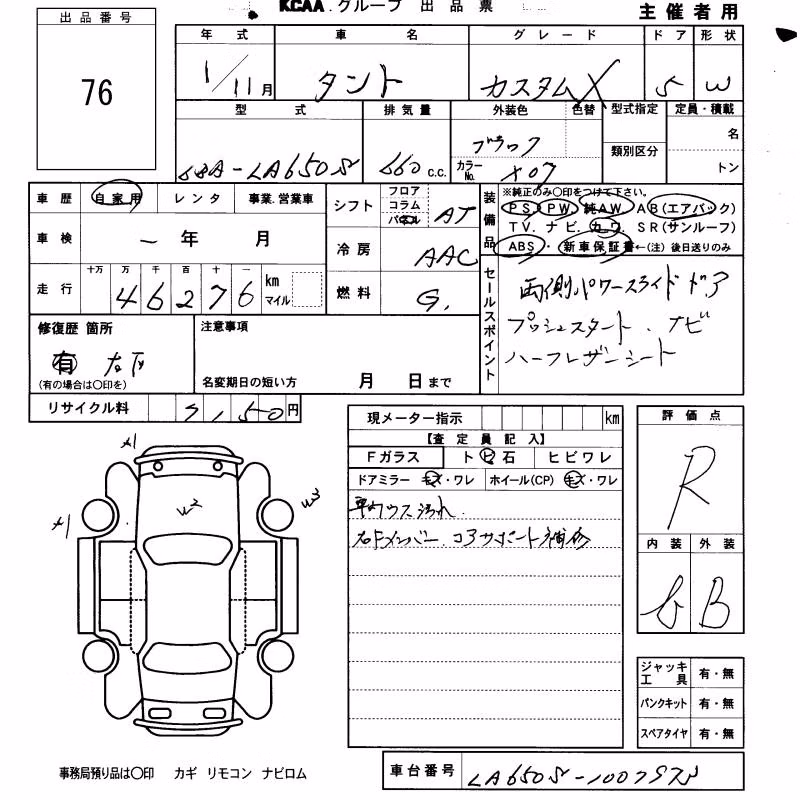 KCAA.グループ 出品票
主催者用
出品番号
76
年式 車名 グレード ドア 形状
1/11月 タント カスタムX 5 W
型式 排気量 外装色 色替 型式指定 定員・積載
LA650S 660 c.c. ブラック カラーNo. X07 類別区分 名 トン
車歴 自家用 レンタ 事業.営業車
シフト フロア コラム パネル AT
装備品
※純正のみ〇印をつけて下さい。
PS PW. 純AW. AB(エアバック)
TV. ナビ. カワ. SR(サンルーフ)
ABS・新車保証書←(注)後日送りのみ
車検 ー年 月
冷房 AAC
走行 十万 万 千 百 十 一 km マイル
46276
燃料 G.
セールスポイント
両側パワースライドドア
プッシュスタート.ナビ
ハーフレザーシート
修復歴 箇所
有 右F
(有の場合は〇印を)
注意事項
名変期日の短い方 月 日まで
リサイクル料 円
現メーター指示 km
【査定員記入】
Fガラス トビ石 ヒビワレ
ドアミラー キズ・ワレ ホイール(CP) キズ・ワレ
車内ウス汚れ.
右Fメンバー.コアサポート補修
評価点
R
内装 外装
B
x1
x1
w2
w3
ジャッキ工具 有・無
パンクキット 有・無
スペアタイヤ 有・無
事務局預り品は〇印 カギ リモコン ナビロム
車台番号